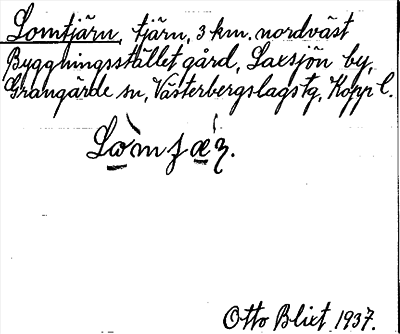 Lomtjärn, tjärn, 3 km. nordväst
Byggningsstället gård, Laxsjön by,
Grangärde sn, Västerbergslags tg, Kopp l.
Lòmjæ̀ɳ.
Otto Blixt 1937.